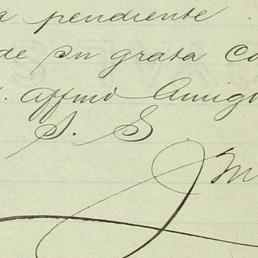 pendiente
de su grata
affmo Amigo
S. S.